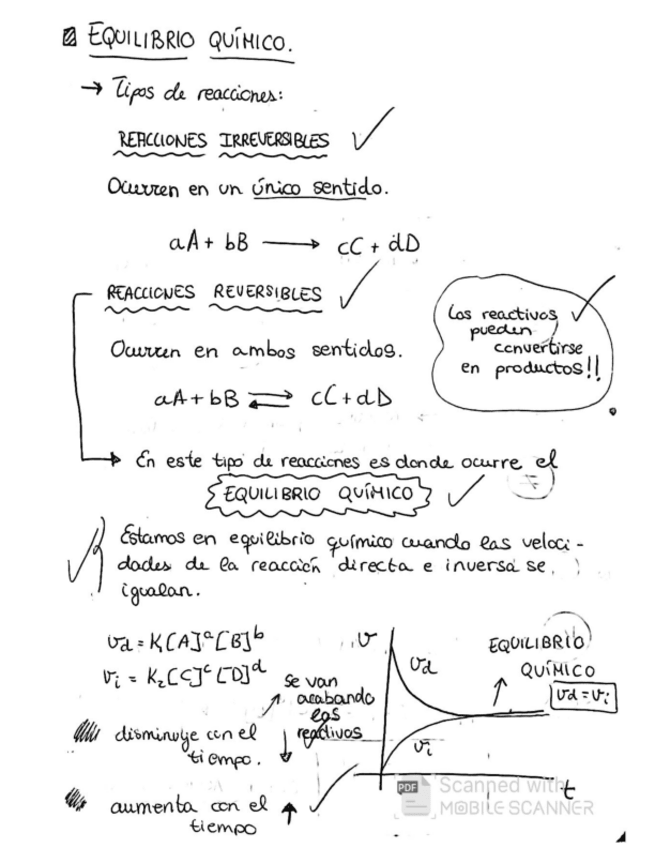 EQUILIBRIO QUÍMICO.
→ Tipos de reacciones:
REACCIONES IRREVERSIBLES
Ocurren en un único sentido.
aA + bB → cC + dD
REACCIONES REVERSIBLES
Los reactivos
pueden
convertirse
en productos!!
Ocurren en ambos sentidos.
aA + bB ⇌ cC + dD
En este tipo de reacciones es donde ocurre el
EQUILIBRIO QUÍMICO
Estamos en equilibrio químico cuando las veloci-
dades de la reacción directa e inversa se
igualan.
vd = K₁[A]ᵃ[B]ᵇ
vi = K₂[C]ᶜ[D]ᵈ
se van
acabando
los
reactivos
disminuye con el
tiempo. ↓
aumenta con el ↑
tiempo
v
vd
vi
EQUILIBRIO
QUÍMICO
vd = vi
t
PDF
Scanned with
MOBILE SCANNER